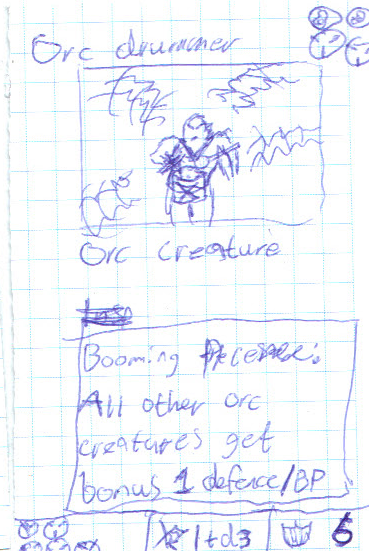 Orc drummer
Orc creature
Booming
All other orc
creatures get
bonus 1 defence/BP
1+d3 6